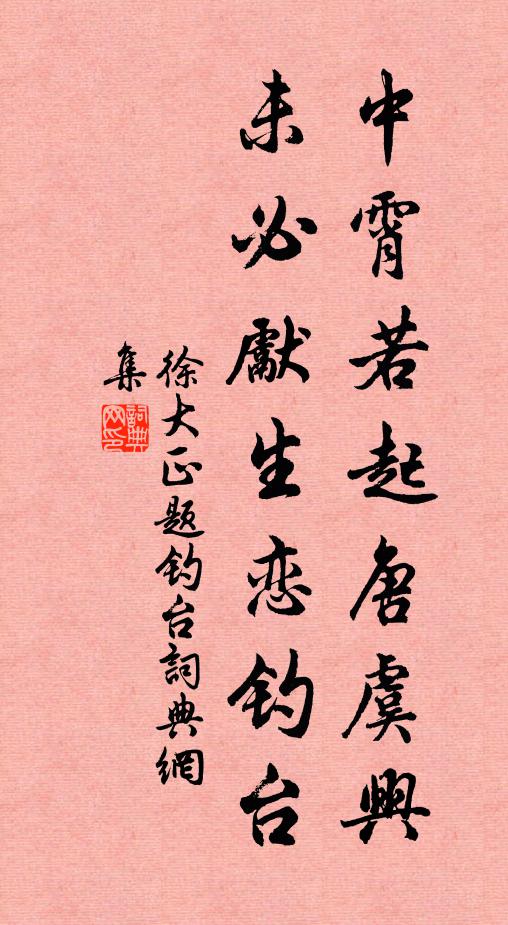 中霄若起唐虞興
未必獻生恋钓台
徐大正题钓台詞典網
集
詞典网印